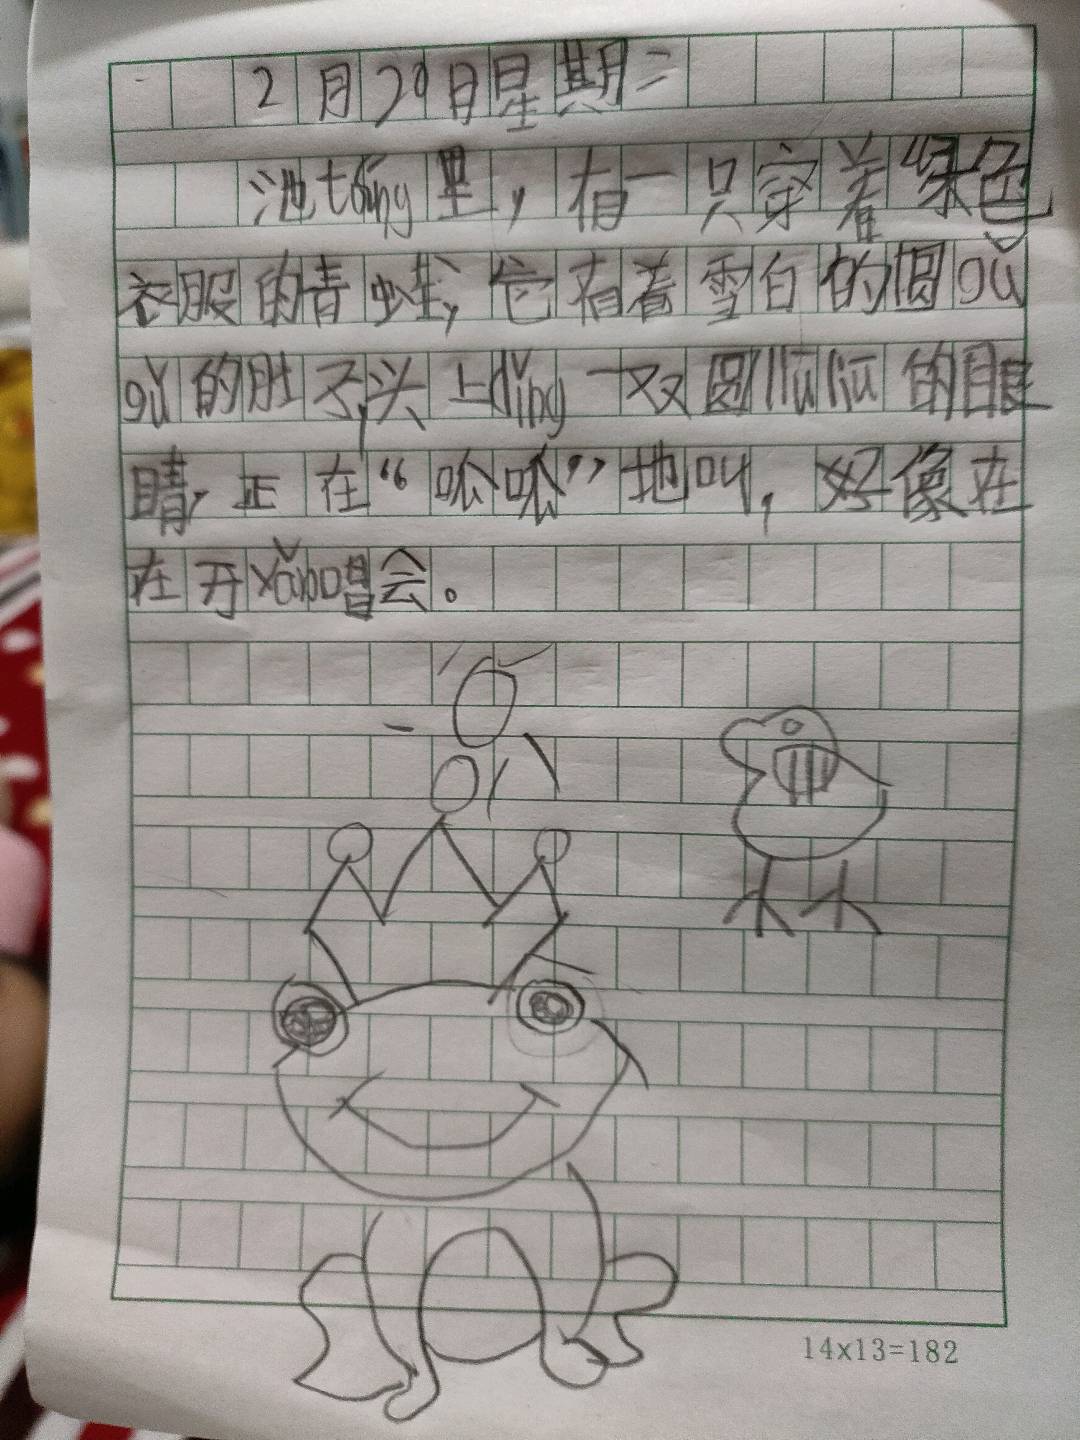 2月20日星期二
池táng里，有一只穿着绿色
衣服的青蛙，它有着雪白的圆gǔ
gǔ的肚子，头上dǐng一双圆liūliū的眼
睛，正在“呱呱”地叫，好像在
在开yǎn唱会。
14x13=182